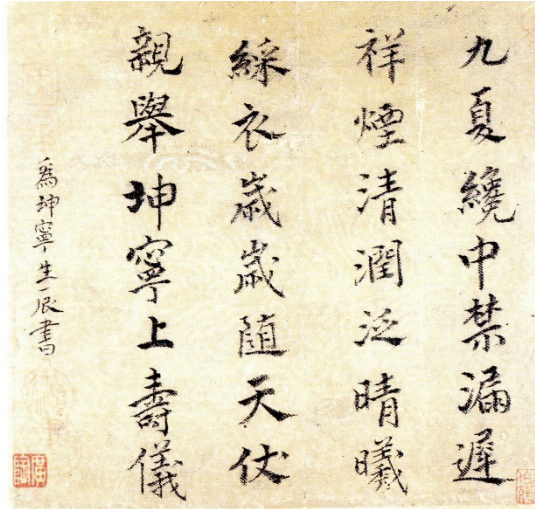 九夏纔中禁漏遲
祥煙清潤泛晴曦
綵衣歲歲随天仗
親舉坤寧上壽儀
爲坤寧生辰書